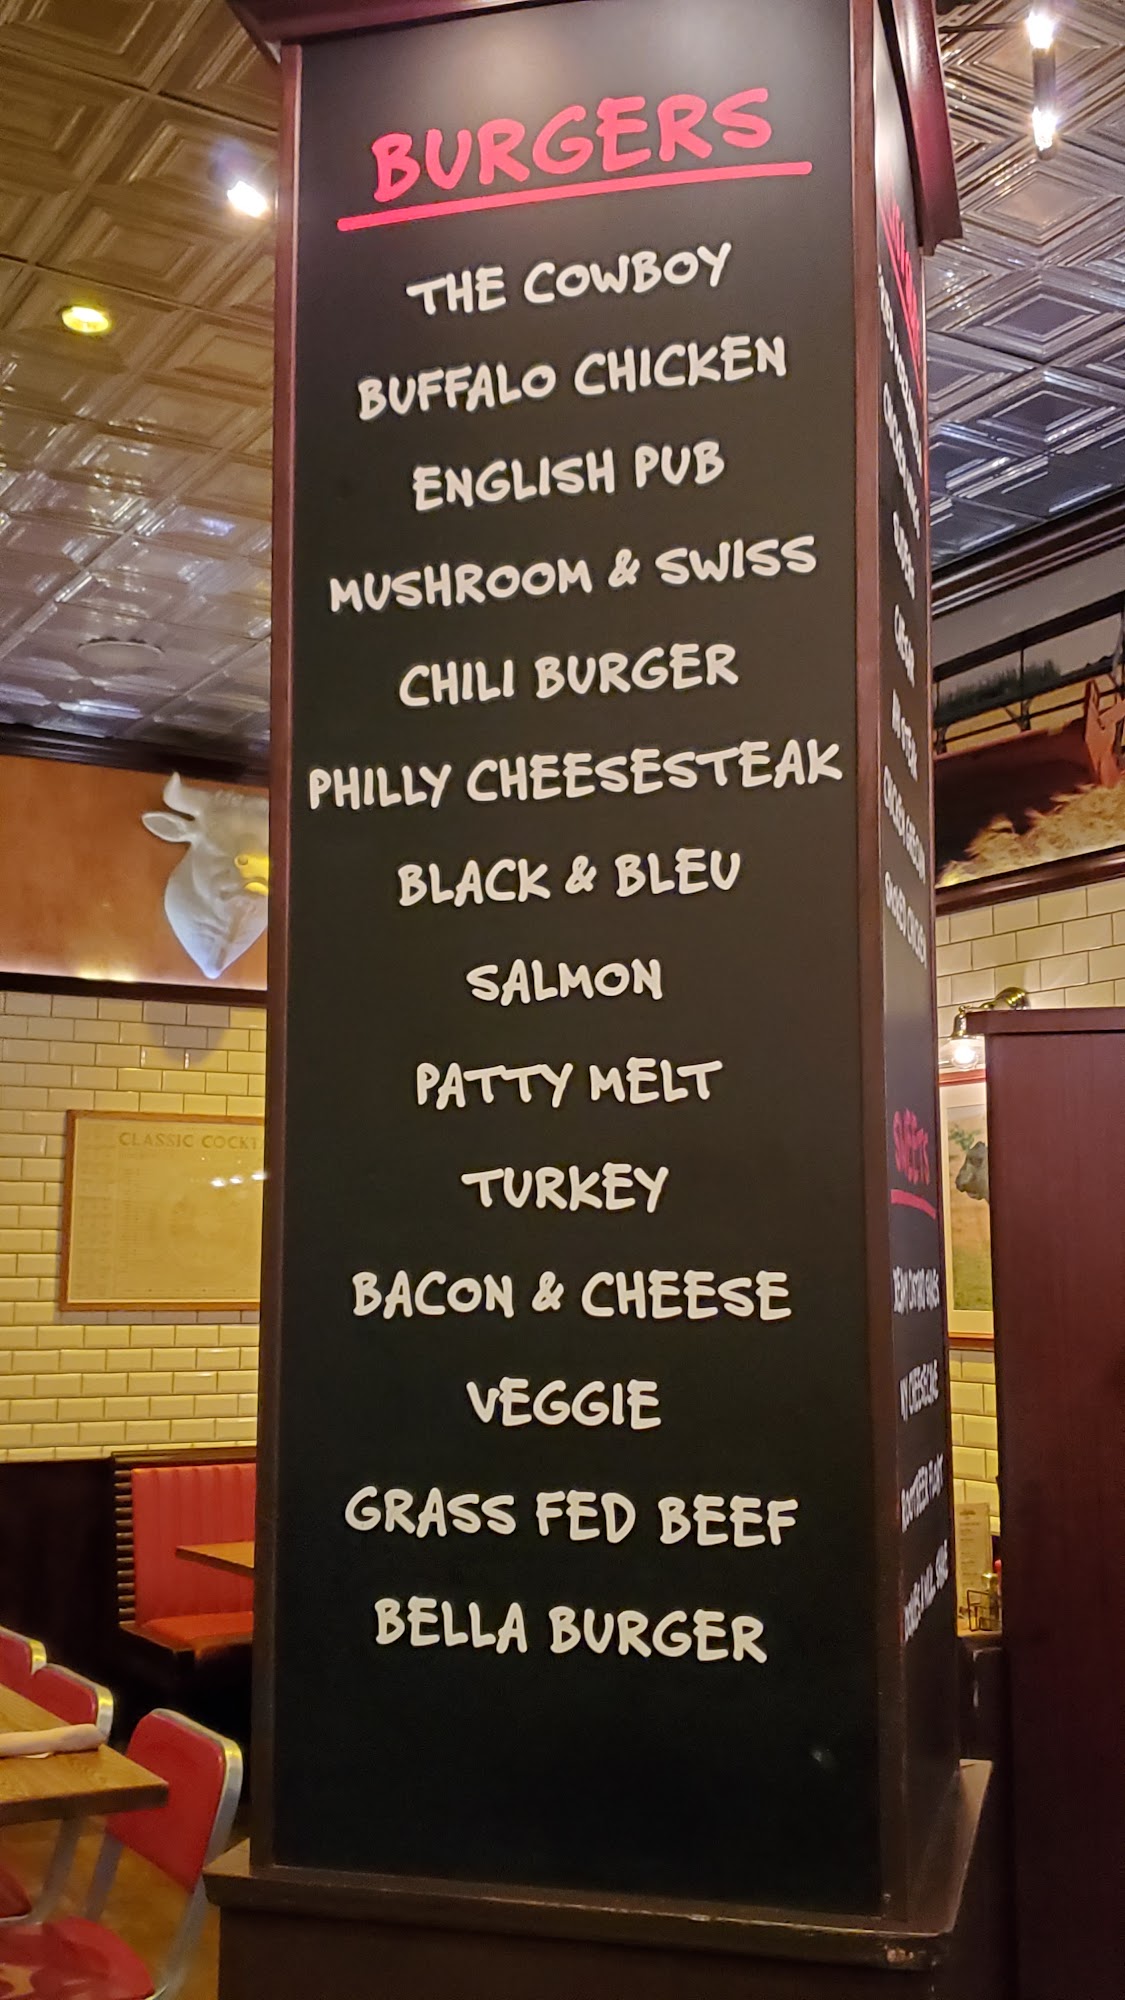 BURGERS
THE COWBOY
BUFFALO CHICKEN
ENGLISH PUB
MUSHROOM & SWISS
CHILI BURGER
PHILLY CHEESESTEAK
BLACK & BLEU
SALMON
PATTY MELT
TURKEY
BACON & CHEESE
VEGGIE
GRASS FED BEEF
BELLA BURGER
SWEETS
NY CHEESECAKE
ROOTBEER FLOAT
CLASSIC